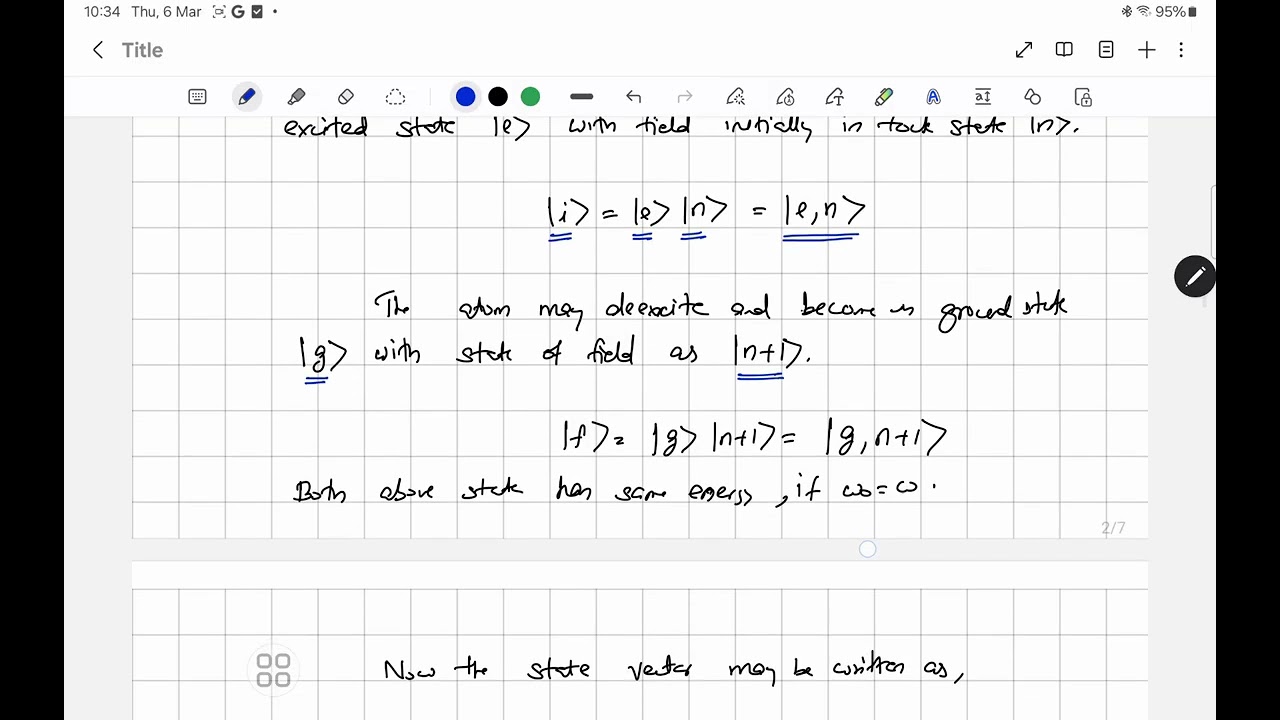 10:34 Thu, 6 Mar G 95%
Title
excited state |e> with field initially in fock state |n>.
|i> = |e> |n> = |e,n>
The atom may deexcite and become in ground state
|g> with state of field as |n+1>.
|f> = |g> |n+1> = |g, n+1>
Both above state has same energy, if ω₀ = ω.
2/7
Now the state vector may be written as,